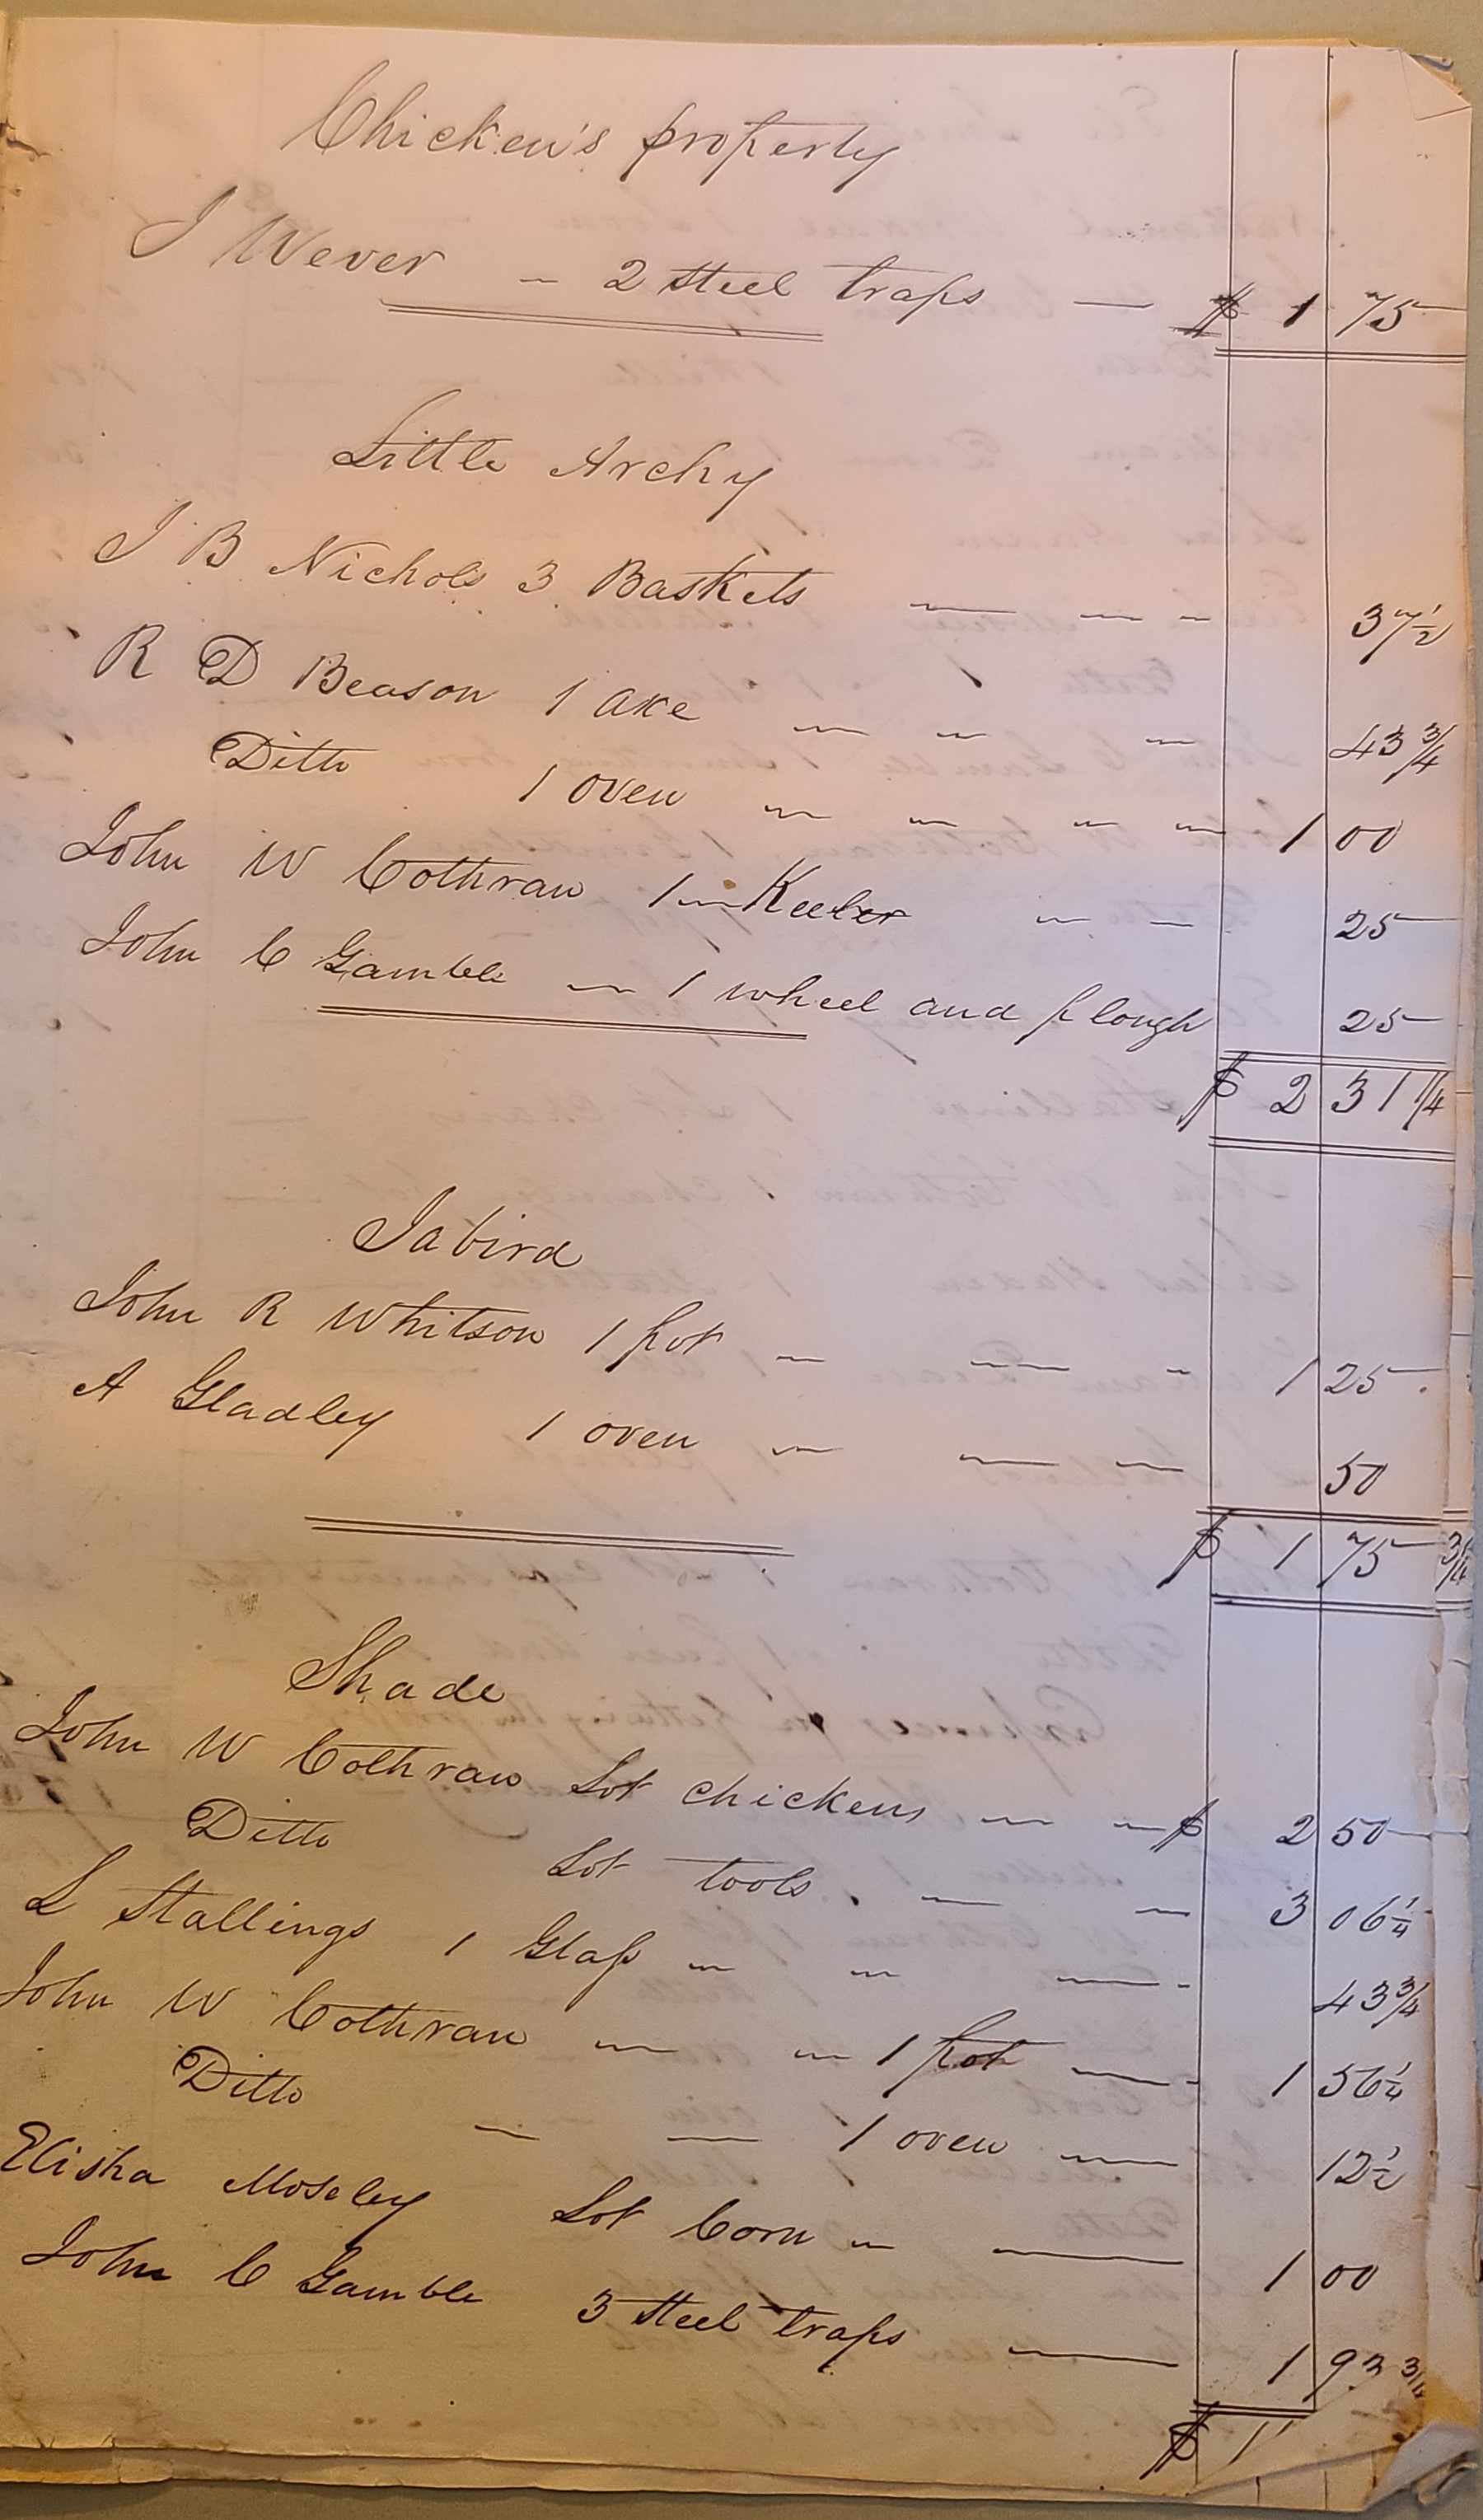 Chicken's property
J Wever - 2 steel traps - $ 1 75
Little Archy
J B Nichols 3 Baskets - - - 37 1/2
R D Beason 1 axe - - - 43 3/4
Ditto 1 oven - - - - 1 00
John W Cothran 1 - Keeler - - 25
John C Gamble - 1 wheel and plough 25
$ 2 31 1/4
Jabird
John R Whitson 1 pot - - - 1 25
A Gladley 1 oven - - - 50
$ 1 75
Shade
John W Cothran Lot chickens - - $ 2 50
Ditto Lot tools - - 3 06 1/4
L Stallings 1 Glass - - - 43 3/4
John W Cothran - - 1 pot - 1 56 1/4
Ditto - - 1 oven - 12 1/2
Elisha Moseley Lot Corn - - 1 00
John C Gamble 3 steel traps - 1 93 3/4
$ 1